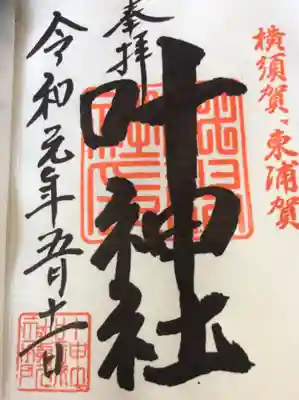 横須賀、東浦賀
奉拝
叶神社
令和元年五月十一日